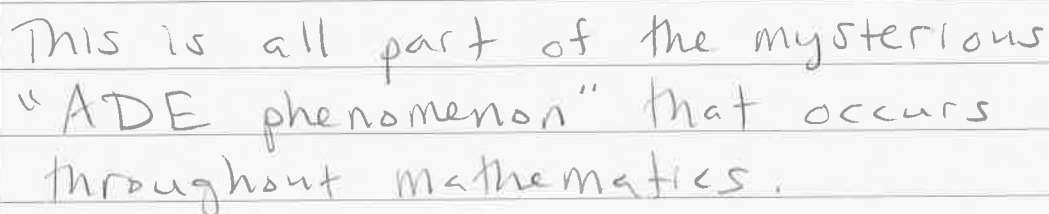 This is all part of the mysterious
"ADE phenomenon" that occurs
throughout mathematics.